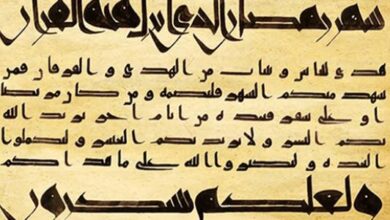 شهر رمضان الذی انزل فیه القران
هدی للناس و بینات من الهدی و الفرقان فمن
شهد منکم الشهر فلیصمه و من کان مریضا
او علی سفر فعده من ایام اخر یرید الله
بکم الیسر و لا یرید بکم العسر و لتکملوا
العده و لتکبروا الله علی ما هداکم
و لعلکم تشکرون